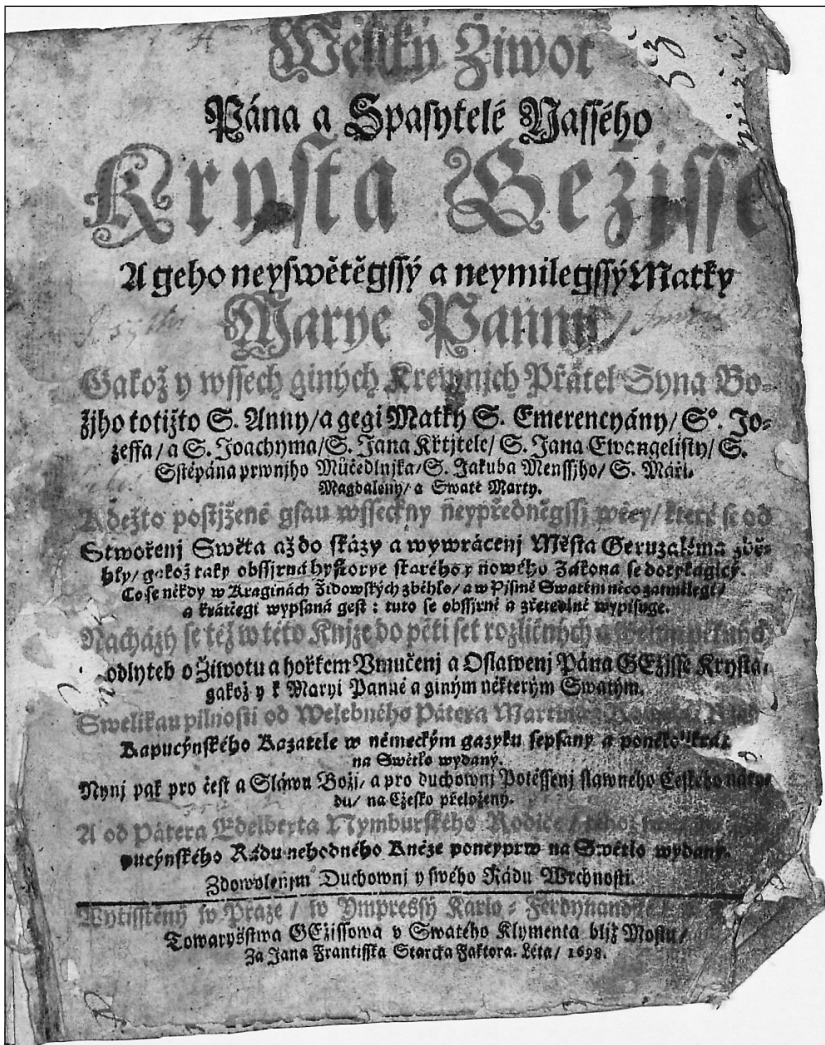 Weliký Žiwot
Pána a Spasytele Nassého
Krysta Gežisse
A geho neyswětěgssý a neymilegssý Matky
Marye Panny /
Gakož y wssech giných Krewnich Přátel Syna Bo-
žjho totižto S. Anny / a gegi Matky S. Emerencyány / S°. Jo-
zeffa / a S. Joachyma / S. Jana Křtjtele / S. Jana Ewangelisty / S.
Sstěpána prwnjho Mučedlnjka / S. Jakuba Menssjho / S. Máří
Magdaleny / a Swaté Marty.
Kdežto postjžené gsau wsseckny neypředněgssj wěcy / které se od
Stwořenj Swěta až do skázy a wywrácenj Města Geruzaléma zbě-
hly / gakož taky obssjrná hystorye starého y nowého Zákona se dotykagicý.
Co se někdy w Kraginách Židowských zběhlo / a w Pjsmě Swatém něco zatmilegi /
a krátčegi wypsaná gest : tuto se obssjrně a zřetedlně wypisuge.
Nacházý se též w této Knjze do pěti set rozličných a
odlyteb o Žiwotu a hořkem Vmučenj a Oslawenj Pána GEžisse Krysta,
gakož y k Maryi Panně a giným některým Swatým.
Swelikau pilnosti od Welebného Pátera Martina z
Kapucýnského Kazatele w německým gazyku sepsaný a poněkolikrát
na Swětlo wydaný.
Nynj pak pro čest a Sláwu Božj / a pro duchownj Potěssenj slawného Českého náro-
du / na Cžesko přeložený.
A od Pátera Edelberta Nymburského Rodiče /
pucýnského Řádu nehodného Kněze poneyprw na Swětlo wydaný.
Zdowolenjm Duchownj y swého Řádu Wrchnosti.
Wytisstěný w Praze / w Ympressý Karlo-Ferdynandské
Towaryšstwa GEžissowa v Swatého Klymenta bljž Mostu /
Za Jana Frantisska Starcka Faktora. Léta / 1698.